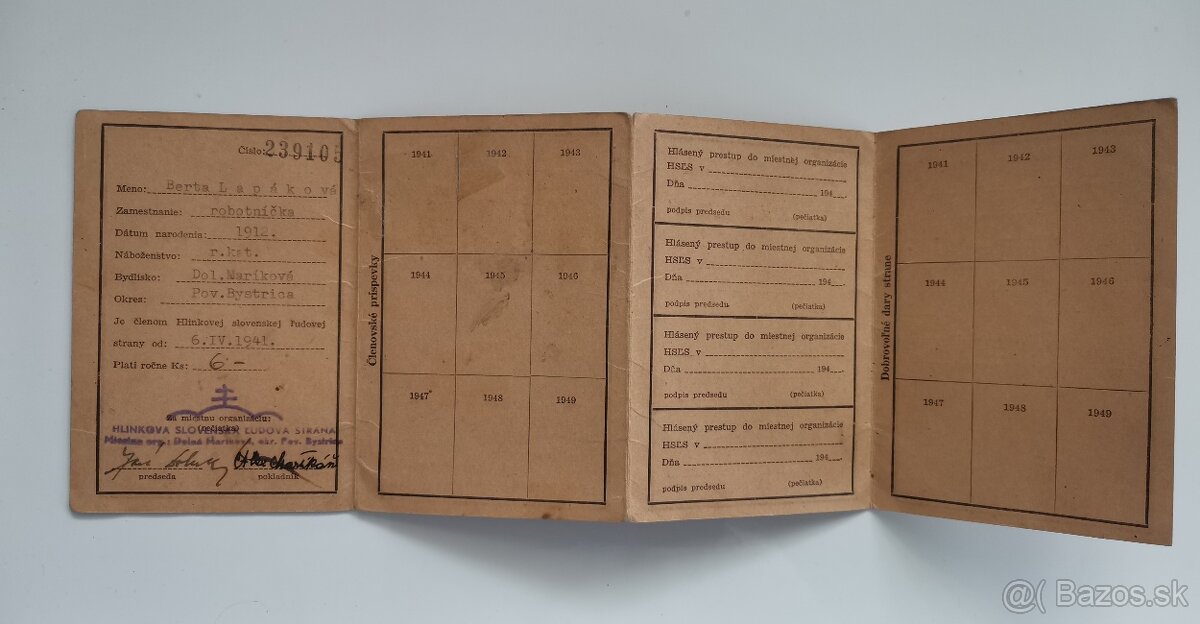 Číslo: 239105
Meno: Berta Lapáková
Zamestnanie: robotníčka
Dátum narodenia: 1912.
Náboženstvo: r.kat.
Bydlisko: Dol.Maríková
Okres: Pov.Bystrica
Je členom Hlinkovej slovenskej ľudovej
strany od: 6.IV.1941.
Platí ročne Ks: 6-
Za miestnu organizáciu:
(pečiatka)
HLINKOVA SLOVENSKÁ ĽUDOVÁ STRANA
Miestna org.: Dolná Maríková, okr. Pov. Bystrica
predseda
pokladník
Členovské príspevky
1941 1942 1943
1944 1945 1946
1947 1948 1949
Hlásený prestup do miestnej organizácie
HSĽS v
Dňa 194
podpis predsedu (pečiatka)
Hlásený prestup do miestnej organizácie
HSĽS v
Dňa 194
podpis predsedu (pečiatka)
Hlásený prestup do miestnej organizácie
HSĽS v
Dňa 194
podpis predsedu (pečiatka)
Hlásený prestup do miestnej organizácie
HSĽS v
Dňa 194
podpis predsedu (pečiatka)
Dobrovoľné dary strane
1941 1942 1943
1944 1945 1946
1947 1948 1949
@( Bazos.sk